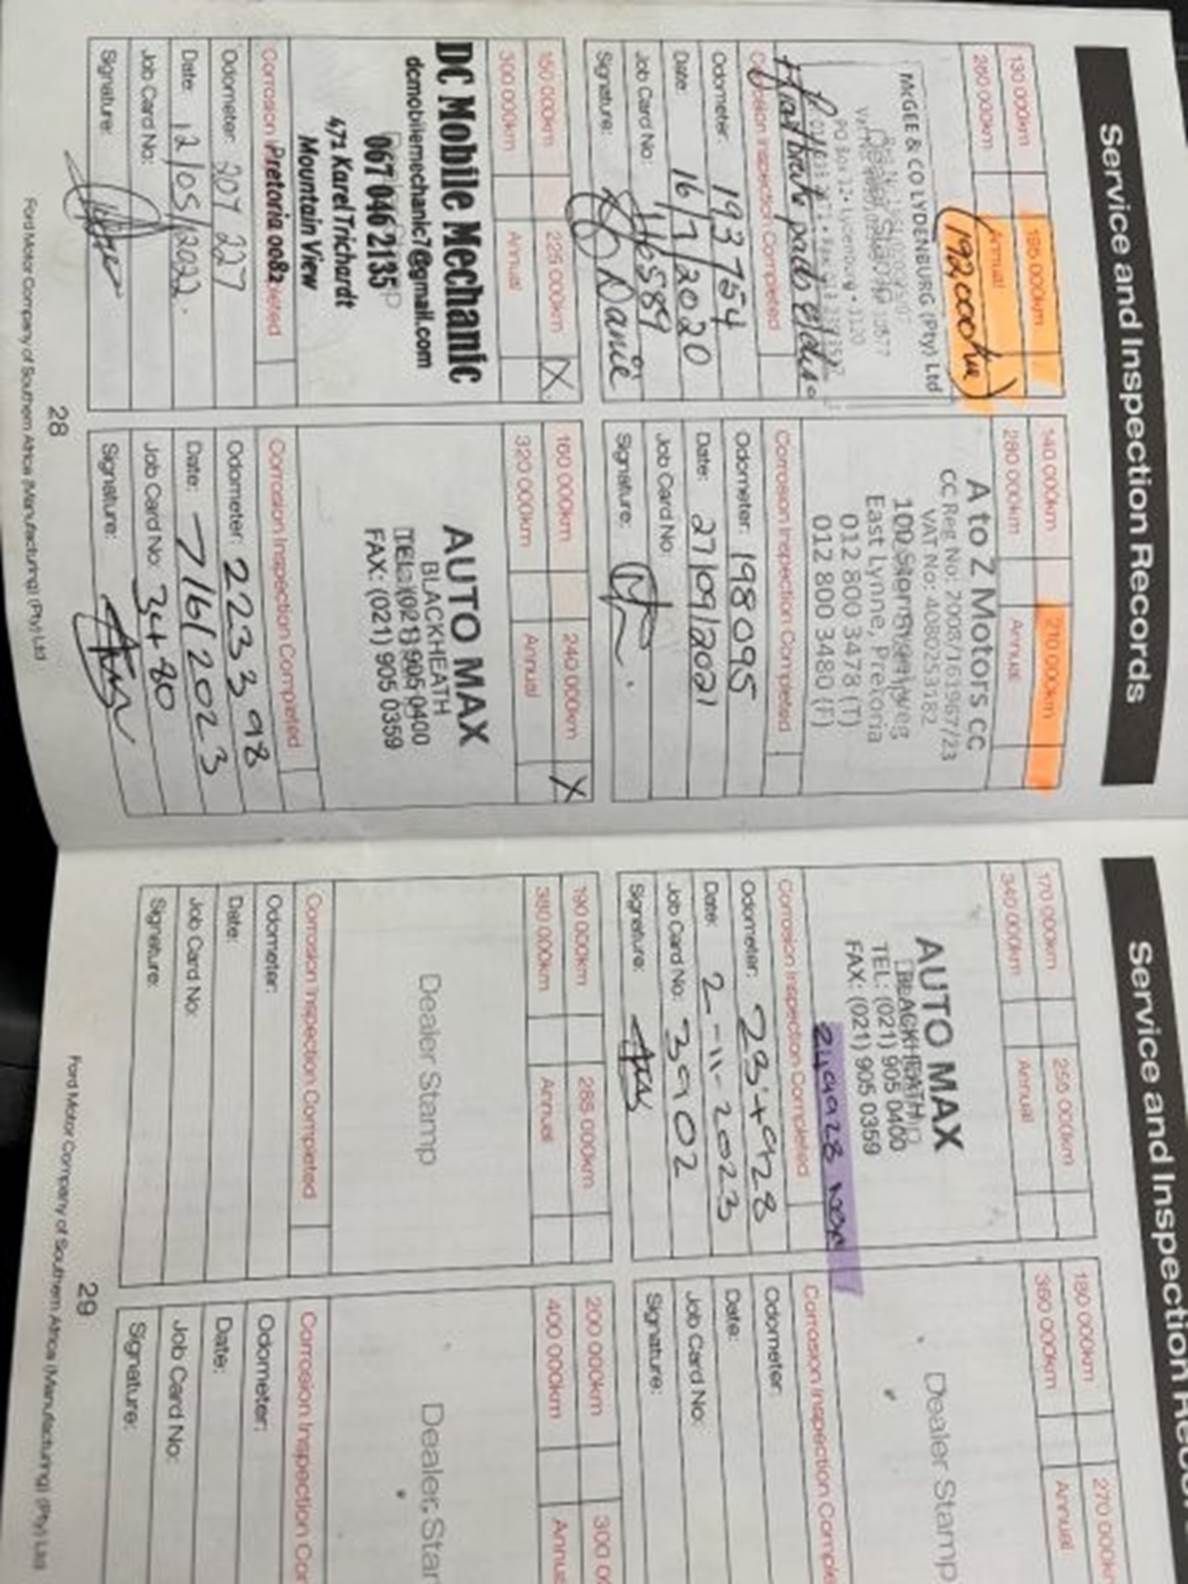 Service and Inspection Records
130 000km
195 000km
260 000km
Annual
(192000km)
McGEE & CO LYDENBURG (Pty) Ltd
Dealer Stamp
PO Box 12 • Lydenburg • 1120
Front brake pads & disc
Corrosion Inspection Completed
Odometer: 193754
Date: 16/7/2020
Job Card No:
Signature: Danie
140 000km
210 000km
280 000km
Annual
A to Z Motors CC
CC Reg No: 2008/161967/23
VAT No: 4080253182
100 Stormvoelweg
East Lynne, Pretoria
012 800 3478 (T)
012 800 3480 (F)
Corrosion Inspection Completed
Odometer: 198095
Date: 27/09/2021
Job Card No:
Signature:
150 000km
225 000km
X
300 000km
Annual
DC Mobile Mechanic
dcmobilemechanic7@gmail.com
067 046 2135
471 Karel Trichardt
Mountain View
Pretoria 0082
Odometer: 207 227
Date: 12/05/2022
Job Card No:
Signature:
160 000km
240 000km
X
320 000km
Annual
AUTO MAX
BLACKHEATH
TEL: (021) 905 0400
FAX: (021) 905 0359
Corrosion Inspection Completed
Odometer: 223398
Date: 7/6/2023
Job Card No: 3480
Signature:
28
Ford Motor Company of Southern Africa (Manufacturing) (Pty) Ltd
Service and Inspection Records
170 000km
255 000km
340 000km
Annual
AUTO MAX
BLACKHEATH
TEL: (021) 905 0400
FAX: (021) 905 0359
Corrosion Inspection Completed
Odometer: 234928
Date: 2-11-2023
Job Card No: 3902
Signature:
180 000km
270 000km
360 000km
Annual
Dealer Stamp
Corrosion Inspection
Odometer:
Date:
Job Card No:
Signature:
190 000km
285 000km
380 000km
Annual
Dealer Stamp
Corrosion Inspection Completed
Odometer:
Date:
Job Card No:
Signature:
200 000km
400 000km
Dealer
Corrosion Inspection
Odometer:
Date:
Job Card No:
Signature:
29
Ford Motor Company of Southern Africa (Manufacturing) (Pty) Ltd